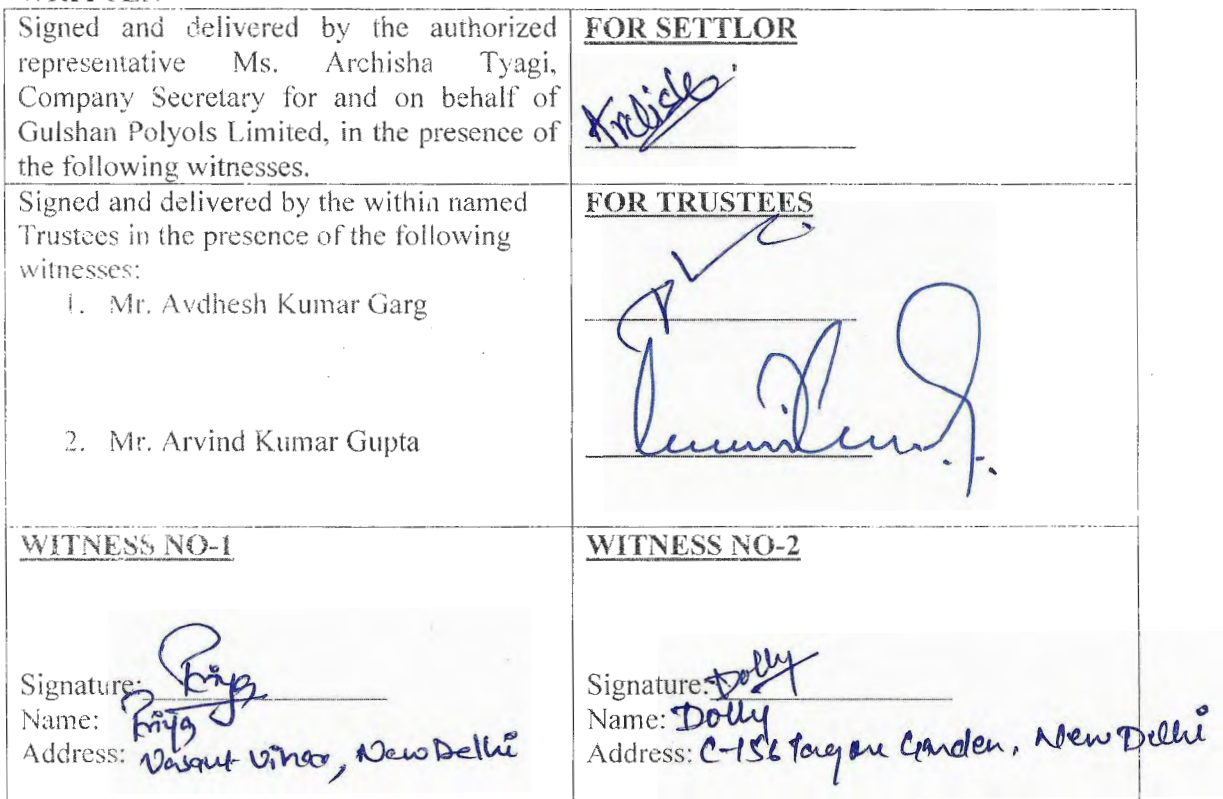 Signed and delivered by the authorized
representative Ms. Archisha Tyagi,
Company Secretary for and on behalf of
Gulshan Polyols Limited, in the presence of
the following witnesses.
FOR SETTLOR
Signed and delivered by the within named
Trustees in the presence of the following
witnesses:
1. Mr. Avdhesh Kumar Garg
2. Mr. Arvind Kumar Gupta
FOR TRUSTEES
WITNESS NO-1
Signature: Priya
Name: Priya
Address: Vasant Vihar, New Delhi
WITNESS NO-2
Signature: Dolly
Name: Dolly
Address: C-156 Tagore Garden, New Delhi